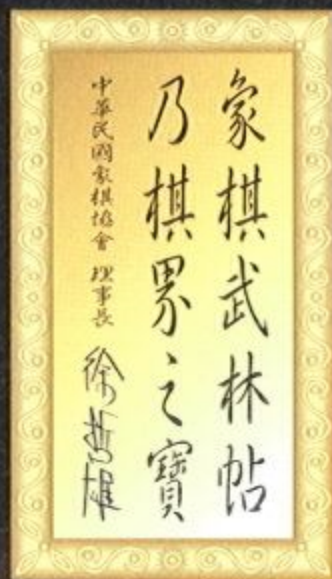 象棋武林帖
乃棋界之寶
中華民國象棋協會 理事長 徐哲雄